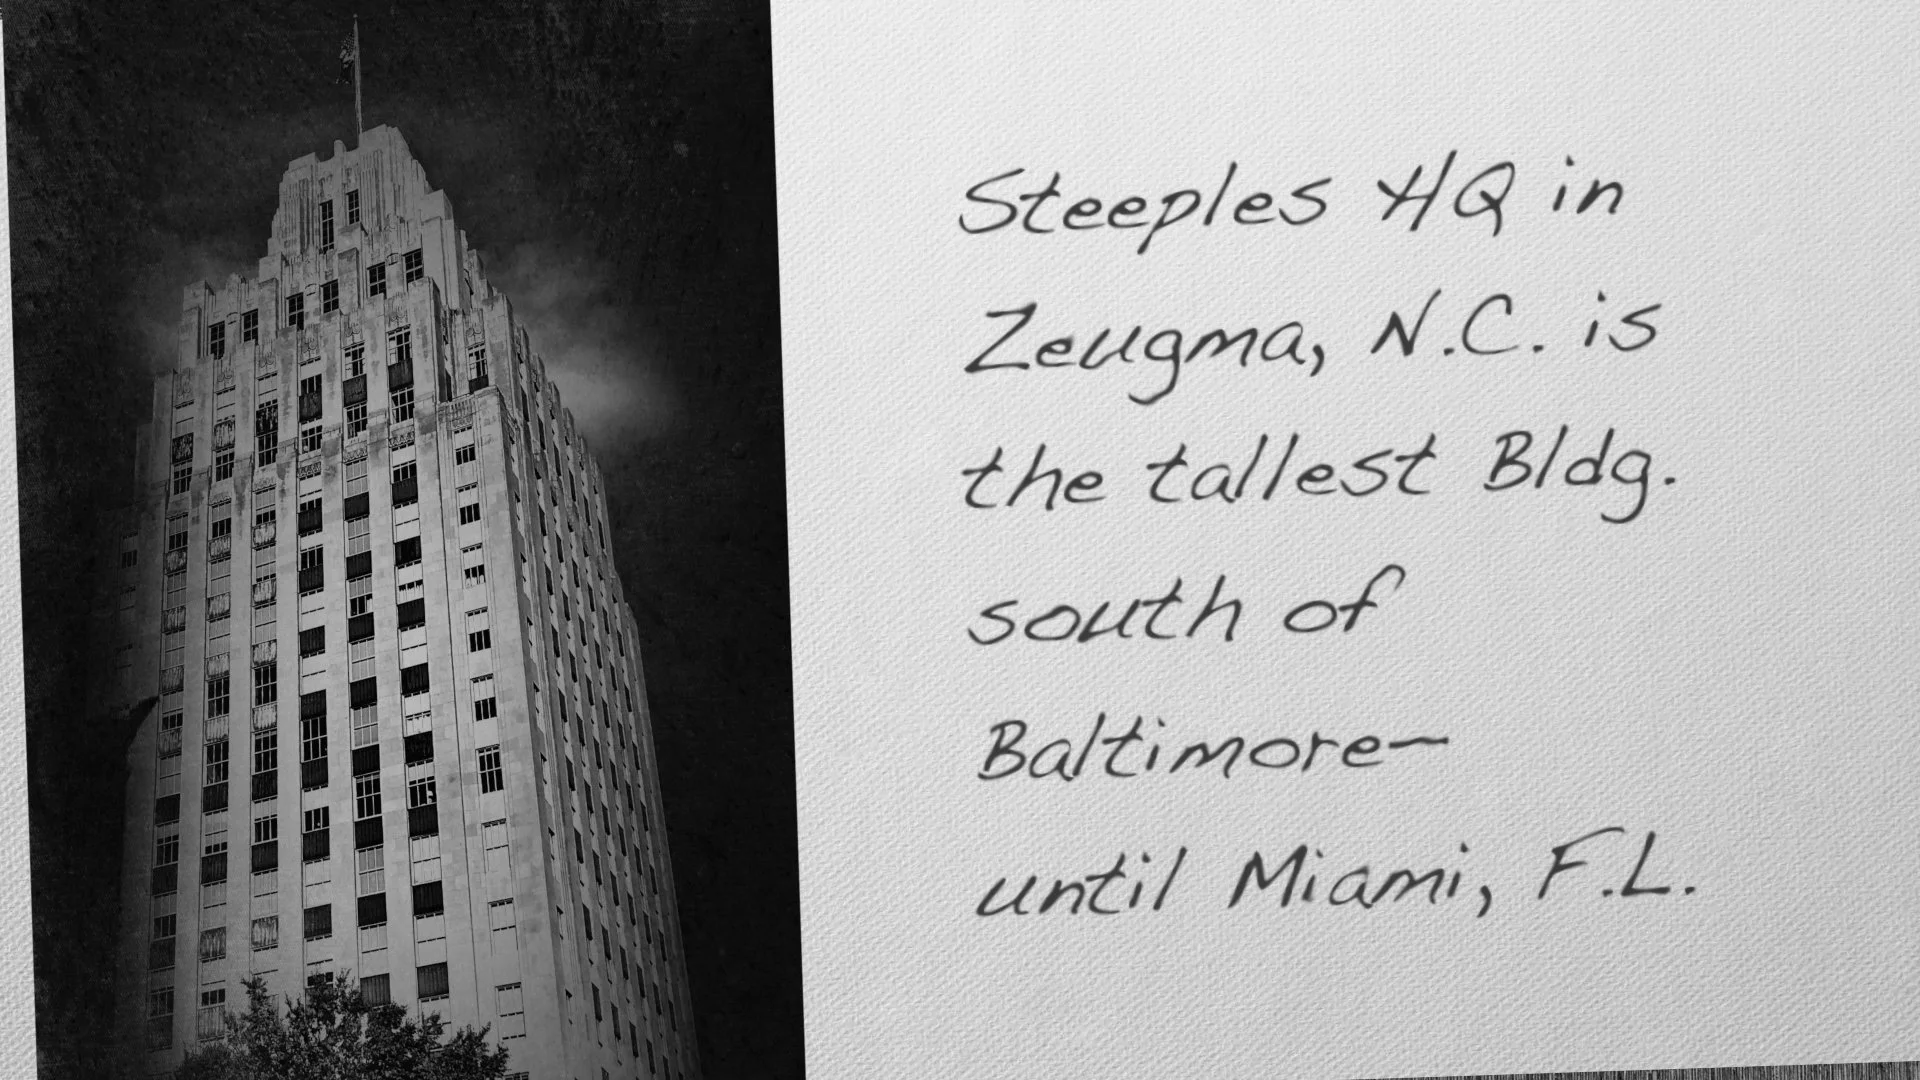 Steeples HQ in
Zeugma, N.C. is
the tallest Bldg.
south of
Baltimore—
until Miami, F.L.